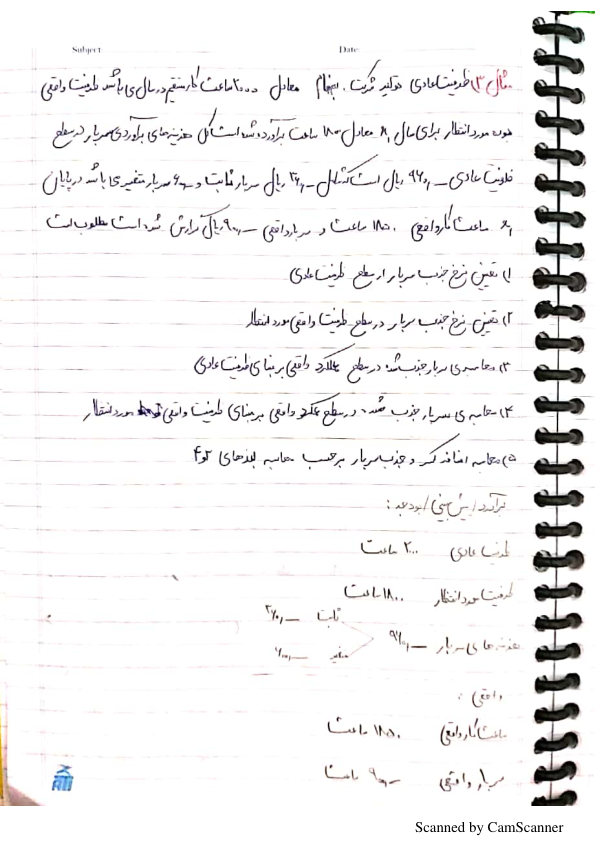 Subject    Date
مثال ۳) ظرفیت عادی تولید شرکت معادل ۲۰۰۰ ساعت کار مستقیم در سال می باشد ظرفیت واقعی
مورد انتظار برای سال معادل ۱۸۰۰ ساعت برآورد شده است کل هزینه های برآوردی سربار در سطح
ظرفیت عادی ریال است که شامل ریال سربار ثابت و سربار متغیر می باشد در پایان
ساعت کار واقعی ۱۸۵۰ ساعت و سربار واقعی ریال گزارش شده است مطلوب است
۱) تعیین نرخ جذب سربار در سطح ظرفیت عادی
۲) تعیین نرخ جذب سربار در سطح ظرفیت واقعی مورد انتظار
۳) محاسبه ی سربار جذب شده در سطح عملکرد واقعی بر مبنای ظرفیت عادی
۴) محاسبه ی سربار جذب شده در سطح عملکرد واقعی بر مبنای ظرفیت واقعی مورد انتظار
۵) محاسبه اضافه کسر و جذب سربار برحسب محاسبه بندهای ۳و۴
برآورد / پیش بینی / بودجه :
ظرفیت عادی ۲۰۰۰ ساعت
ظرفیت مورد انتظار ۱۸۰۰ ساعت
ثابت
هزینه های سربار
متغیر
واقعی :
ساعت کار واقعی ۱۸۵۰ ساعت
سربار واقعی ساعت
Scanned by CamScanner